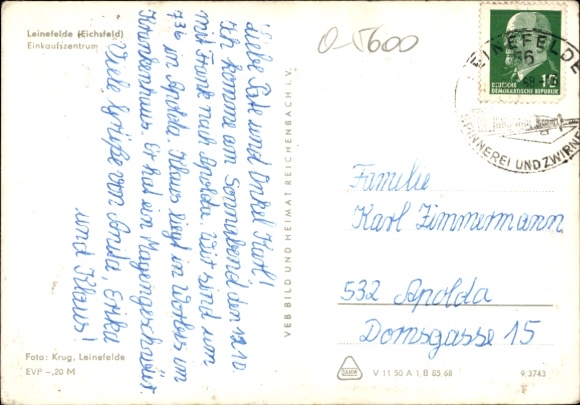 Leinefelde (Eichsfeld)
Einkaufszentrum
Liebe Tate und Onkel Karl!
Ich komme am Sonnabend, den 12.10
mit Frank nach Apolda. Wir sind um
7.36 in Apolda. Klaus liegt in Worbis im
Krankenhaus. Er hat ein Magengeschwür
Viele Grüße von Anda, Erika
und Klaus!
Foto: Krug, Leinefelde
EVP -,20 M
VEB BILD UND HEIMAT REICHENBACH i. V.
0-5600
10
DEUTSCHE
DEMOKRATISCHE REPUBLIK
LEINEFELDE
SPINNEREI UND ZWIRNEREI
Familie
Karl Zimmermann
532 Apolda
Domsgasse 15
V 11 50 A 1, B 85/68
9.3743